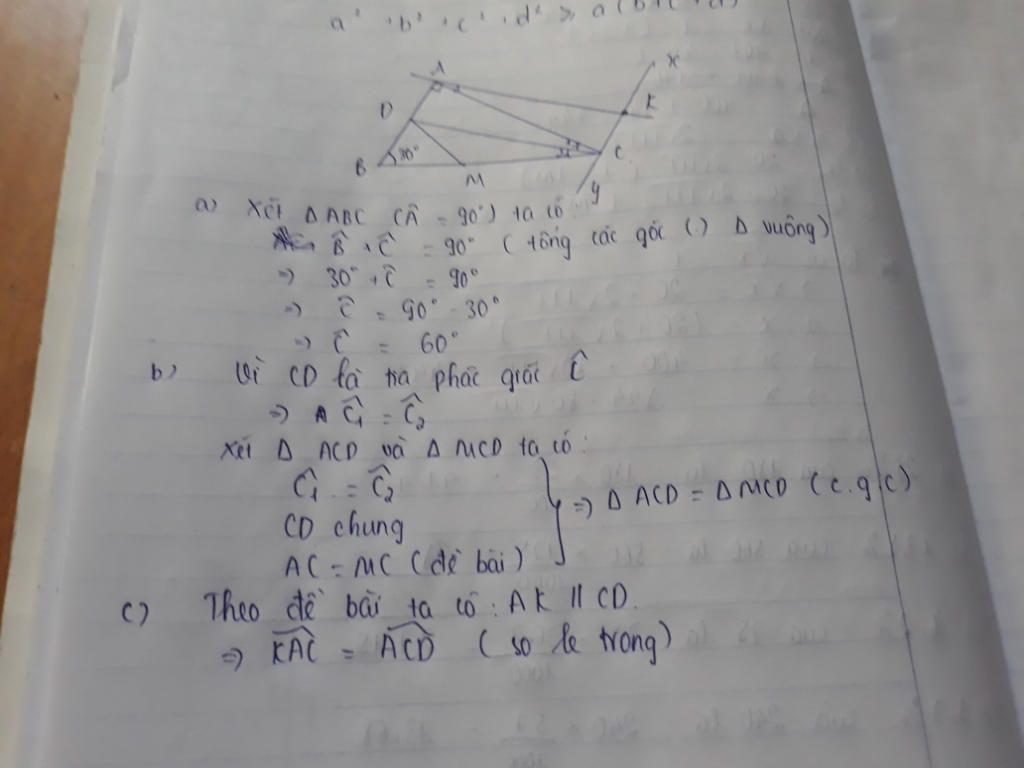 a² + b² + c² + d² ≥ a(b+c+d)
A
x
D
K
B
30°
C
M
y
a) Xét Δ ABC (Â = 90°) ta có:
B̂ + Ĉ = 90° (tổng các góc (.) Δ vuông)
=> 30° + Ĉ = 90°
=> Ĉ = 90° - 30°
=> Ĉ = 60°
b) Vì CD là tia phâc giác Ĉ
=> Ĉ₁ = Ĉ₂
Xét Δ ACD và Δ MCD ta có:
Ĉ₁ = Ĉ₂
CD chung
=> Δ ACD = Δ MCD (c.g.c)
AC = MC (đề bài)
c) Theo đề bài ta có: AK // CD.
=> KAC = ACD (so le trong)